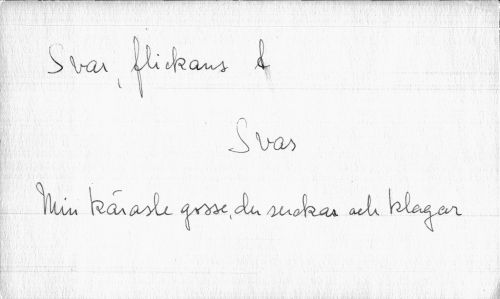 Svar, flickans
Svar
Min käraste gosse, du suckar och klagar